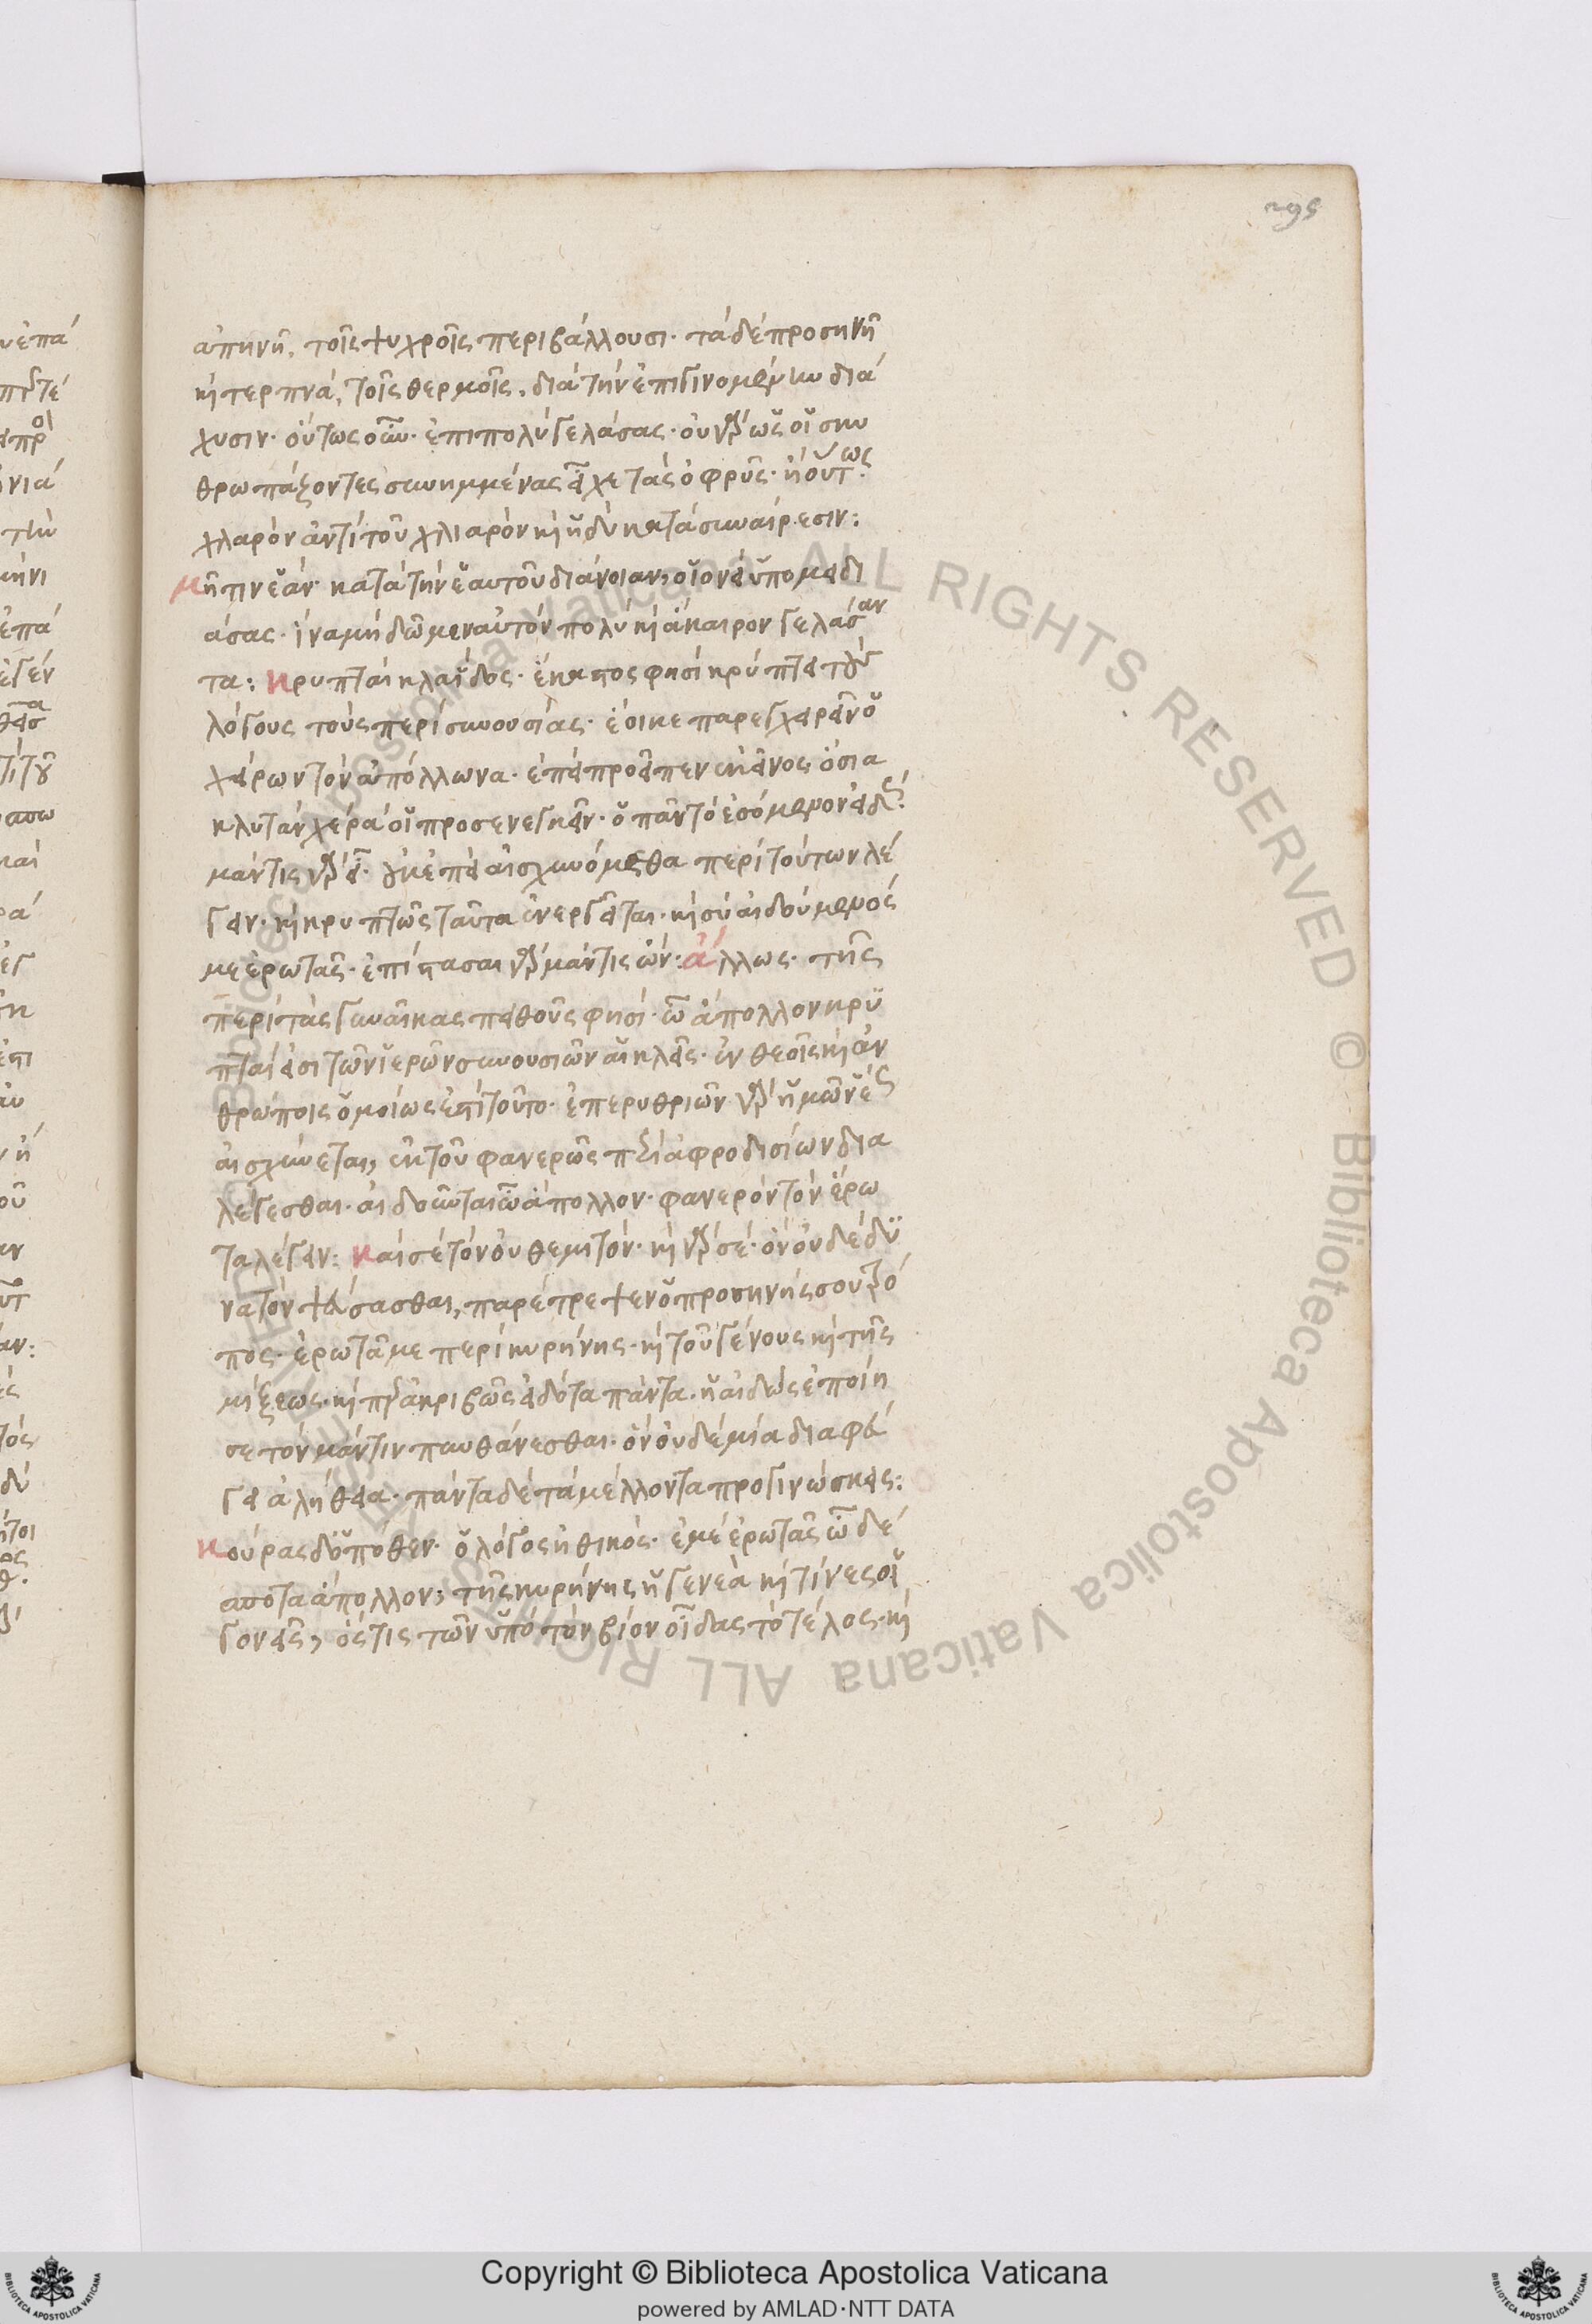 295
ἀπηνῆ, τοῖς ψυχροῖς περιβάλλουσι· τὰ δὲ προσηνῆ
κὶ τερπνά, τοῖς θερμοῖς. διὰ τὴν ἐπιγινομένην διά
χυσιν· οὕτως οὖν· ἐπιπολὺ γελάσας· οὐ γὰρ ὡς οἱ σκυ
θρωπάζοντες συνημμένας εἶχε τὰς ὀφρῦς· ἢ οὕτως.
χλαρὸν ἀντὶ τοῦ χλιαρὸν κὶ ἡδὺ κατὰ συναίρεσιν:
μῆτιν ἑάν· κατὰ τὴν ἑαυτοῦ διάνοιαν, οἱονεὶ ὑπομειδι
άσας· ἵνα μὴ δῶμεν αὐτὸν πολὺ κὶ ἄκαιρον γελάσαν
τα: κρυπταὶ κλαῖδες· ἕκαστος φησὶ κρύπτει τοὺς
λόγους τοὺς περὶ συνουσίας· ἔοικε παρεγχειρεῖν ὁ
χείρων τὸν ἀπόλλωνα· ἐπεὶ προεῖπεν ἐκεῖνος, ὁσία
κλυτὰν χέρα οἱ προσενεγκεῖν· ὁ πᾶν τὸ ἐσόμενον εἰδώς.
μάντις γὰρ εἶ· οὐκ ἐπεὶ αἰσχυνόμεθα περὶ τούτων λέ
γειν· κὶ κρυπτῶς ταῦτα ἐνεργεῖται· κὶ σὺ αἰδούμενός
με ἐρωτᾷς· ἐπίστασαι γὰρ μάντις ὤν· ἄλλως· τῆς
περὶ τὰς γυναῖκας πειθοῦς φησί· ὦ ἄπολλον κρυ
πταί εἰσι τῶν ἱερῶν συνουσιῶν αἱ κλεῖς· ἐν θεοῖς κὶ ἀν
θρώποις ὁμοίως ἐπὶ τοῦτο· ἐπερυθριῶν γὰρ ἡμῶν ἕκαστος
αἰσχύνεται, ἐκ τοῦ φανερῶς περὶ ἀφροδισίων δια
λέγεσθαι· αἰδοῦνται ὦ ἄπολλον· φανερὸν τὸν ἔρω
τα λέγειν: καὶ σὲ τὸν οὐ θεμιτόν· κὶ γὰρ σέ· ὃν οὐδὲ δυ
νατὸν ψεύσασθαι, παρέτρεψεν ὁ προσηνής σου τρό
πος· ἐρωτᾶν με περὶ κυρήνης· κὶ τοῦ γένους κὶ τῆς
μίξεως· κὶ πρὸς ἀκριβῶς εἰδότα πάντα· ἡ αἰδὼς ἐποίη
σε τὸν μάντιν πυνθάνεσθαι· ὃν οὐδὲ μία διαφεύ
γει ἀλήθεια· πάντα δὲ τὰ μέλλοντα προγινώσκεις:
κούρας δ' ὁπόθεν· ὁ λόγος ἠθικός· ἐμὲ ἐρωτᾷς ὦ δέ
σποτα ἄπολλον; τῆς κυρήνης ἡ γενεὰ κὶ τίνες οἱ
γονεῖς, ὅς τις τῶν ὑπὸ τὸν βίον οἶδας τὸ τέλος· κὶ
Copyright © Biblioteca Apostolica Vaticana
powered by AMLAD·NTT DATA